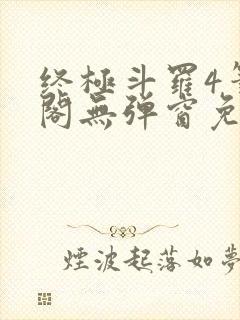 终極斗羅4
閣無彈窗免
煙波起落如夢